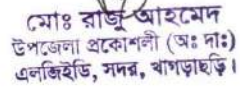 মোঃ রাজু আহমেদ
উপজেলা প্রকৌশলী (অঃ দাঃ)
এলজিইডি, সদর, খাগড়াছড়ি।